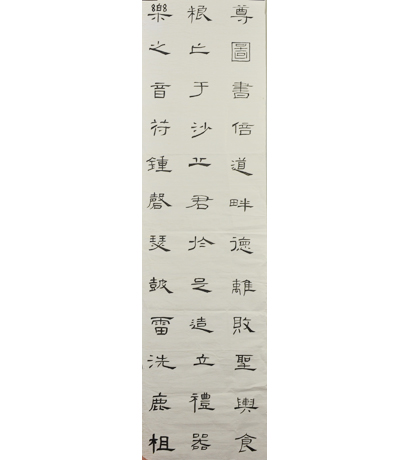 尊圖書倍道畔德離敗聖輿食
粮亡于沙丘君於是造立禮器
樂之音苻鍾磬瑟鼓雷洗鹿柤